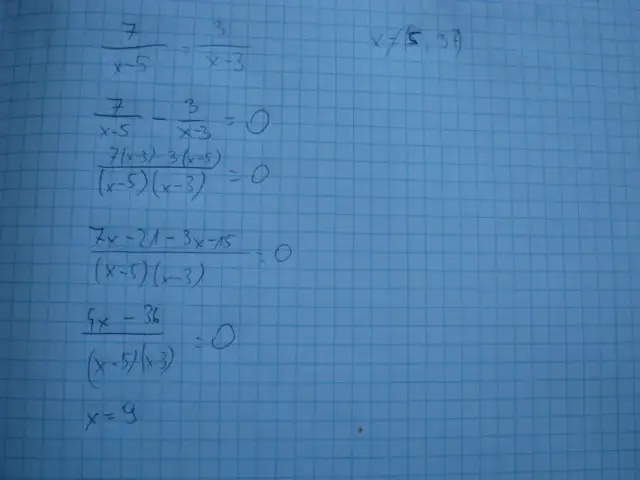 7/(x-5) - 3/(x-3)
7/(x-5) - 3/(x-3) = 0
7(x-3) 3(x-5)/(x-5)(x-3) = 0
7x-21-3x-15/(x-5)(x-3) = 0
4x - 36/(x-5)(x-3) = 0
x = 9